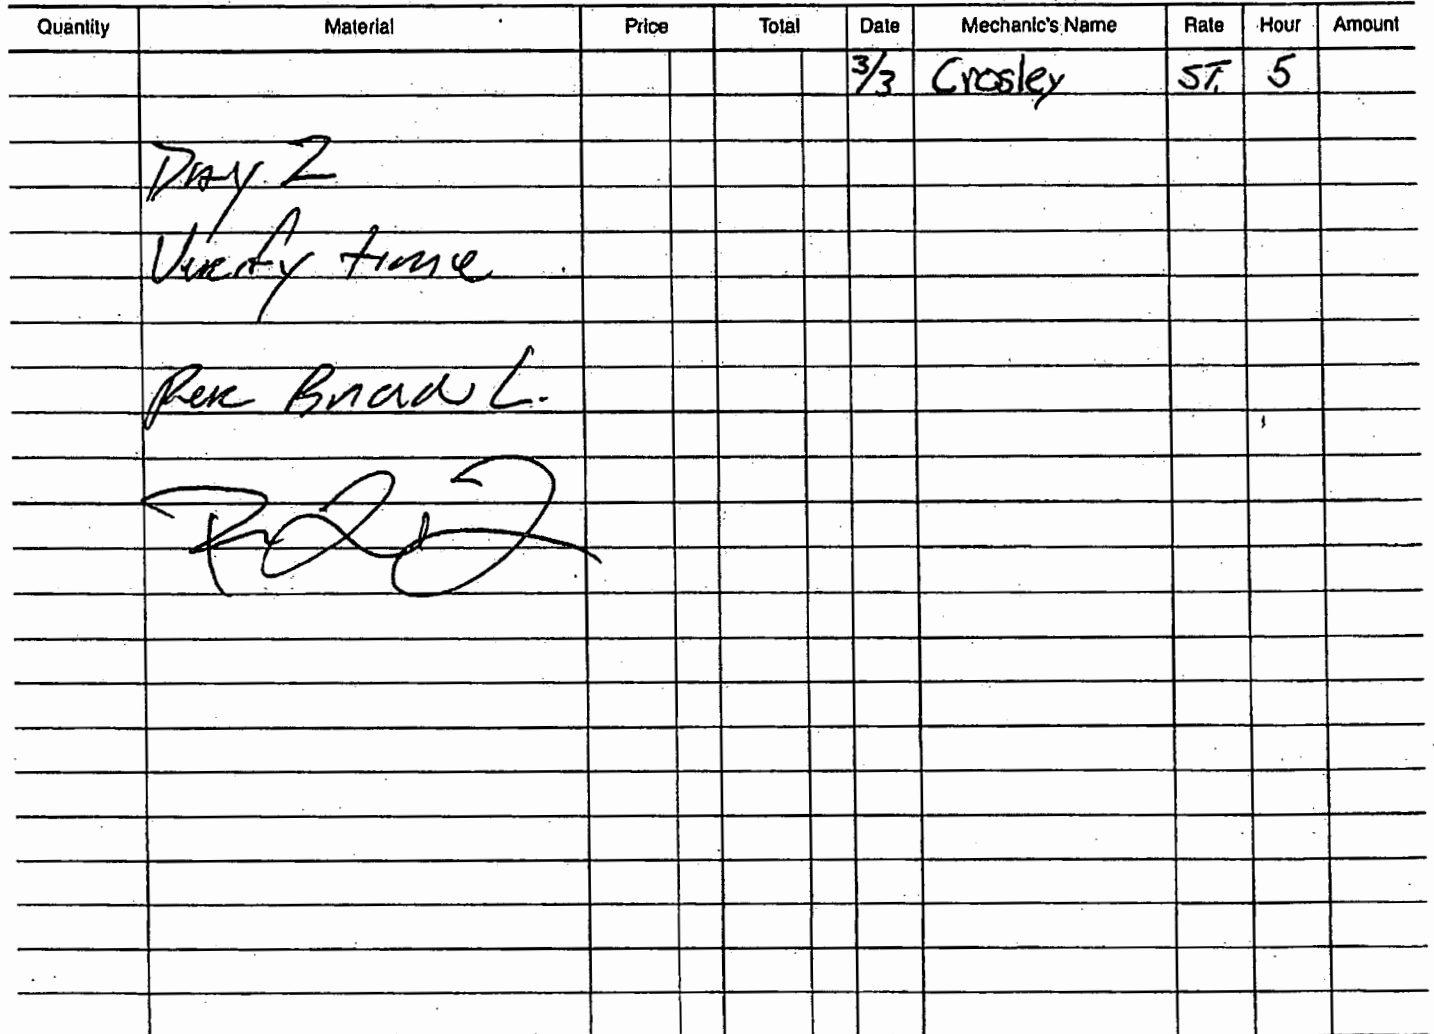 Quantity Material Price Total Date Mechanic's Name Rate Hour Amount
3/3 Crosley ST. 5
Day 2
Verify time
Per Brad L.